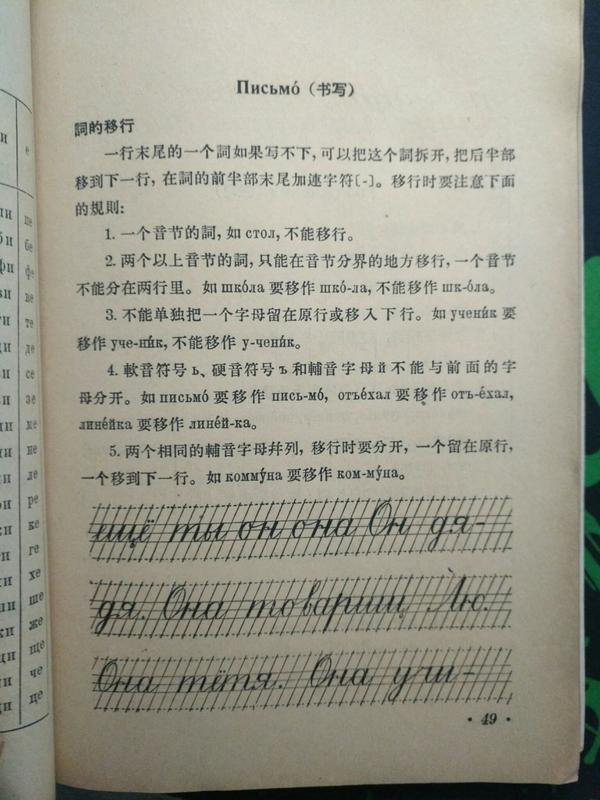 и
е
пи
пе
би
бе
фи
фе
ви
ве
ти
те
ди
де
си
се
зи
зе
ми
ме
ни
не
ли
ле
ри
ре
ки
ке
ги
ге
хи
хе
ши
ше
жи
же
щи
ще
чи
че
ци
це
Письмо́ (书写)
詞的移行
一行末尾的一个詞如果写不下, 可以把这个詞拆开, 把后半部
移到下一行, 在詞的前半部末尾加連字符[-]。移行时要注意下面
的規則:
1. 一个音节的詞, 如 стол, 不能移行。
2. 两个以上音节的詞, 只能在音节分界的地方移行, 一个音节
不能分在两行里。如 шко́ла 要移作 шко́-ла, 不能移作 шк-о́ла。
3. 不能单独把一个字母留在原行或移入下行。如 учени́к 要
移作 уче-ни́к, 不能移作 у-чени́к。
4. 軟音符号 ь、硬音符号 ъ 和輔音字母 й 不能与前面的字
母分开。如 письмо́ 要移作 пись-мо́, отъе́хал 要移作 отъ-е́хал,
лине́йка 要移作 лине́й-ка。
5. 两个相同的輔音字母并列, 移行时要分开, 一个留在原行,
一个移到下一行。如 комму́на 要移作 ком-му́на。
ещё ты он она Он дя-
дя. Она товарищ Лю.
Она тётя. Она учи-
• 49 •